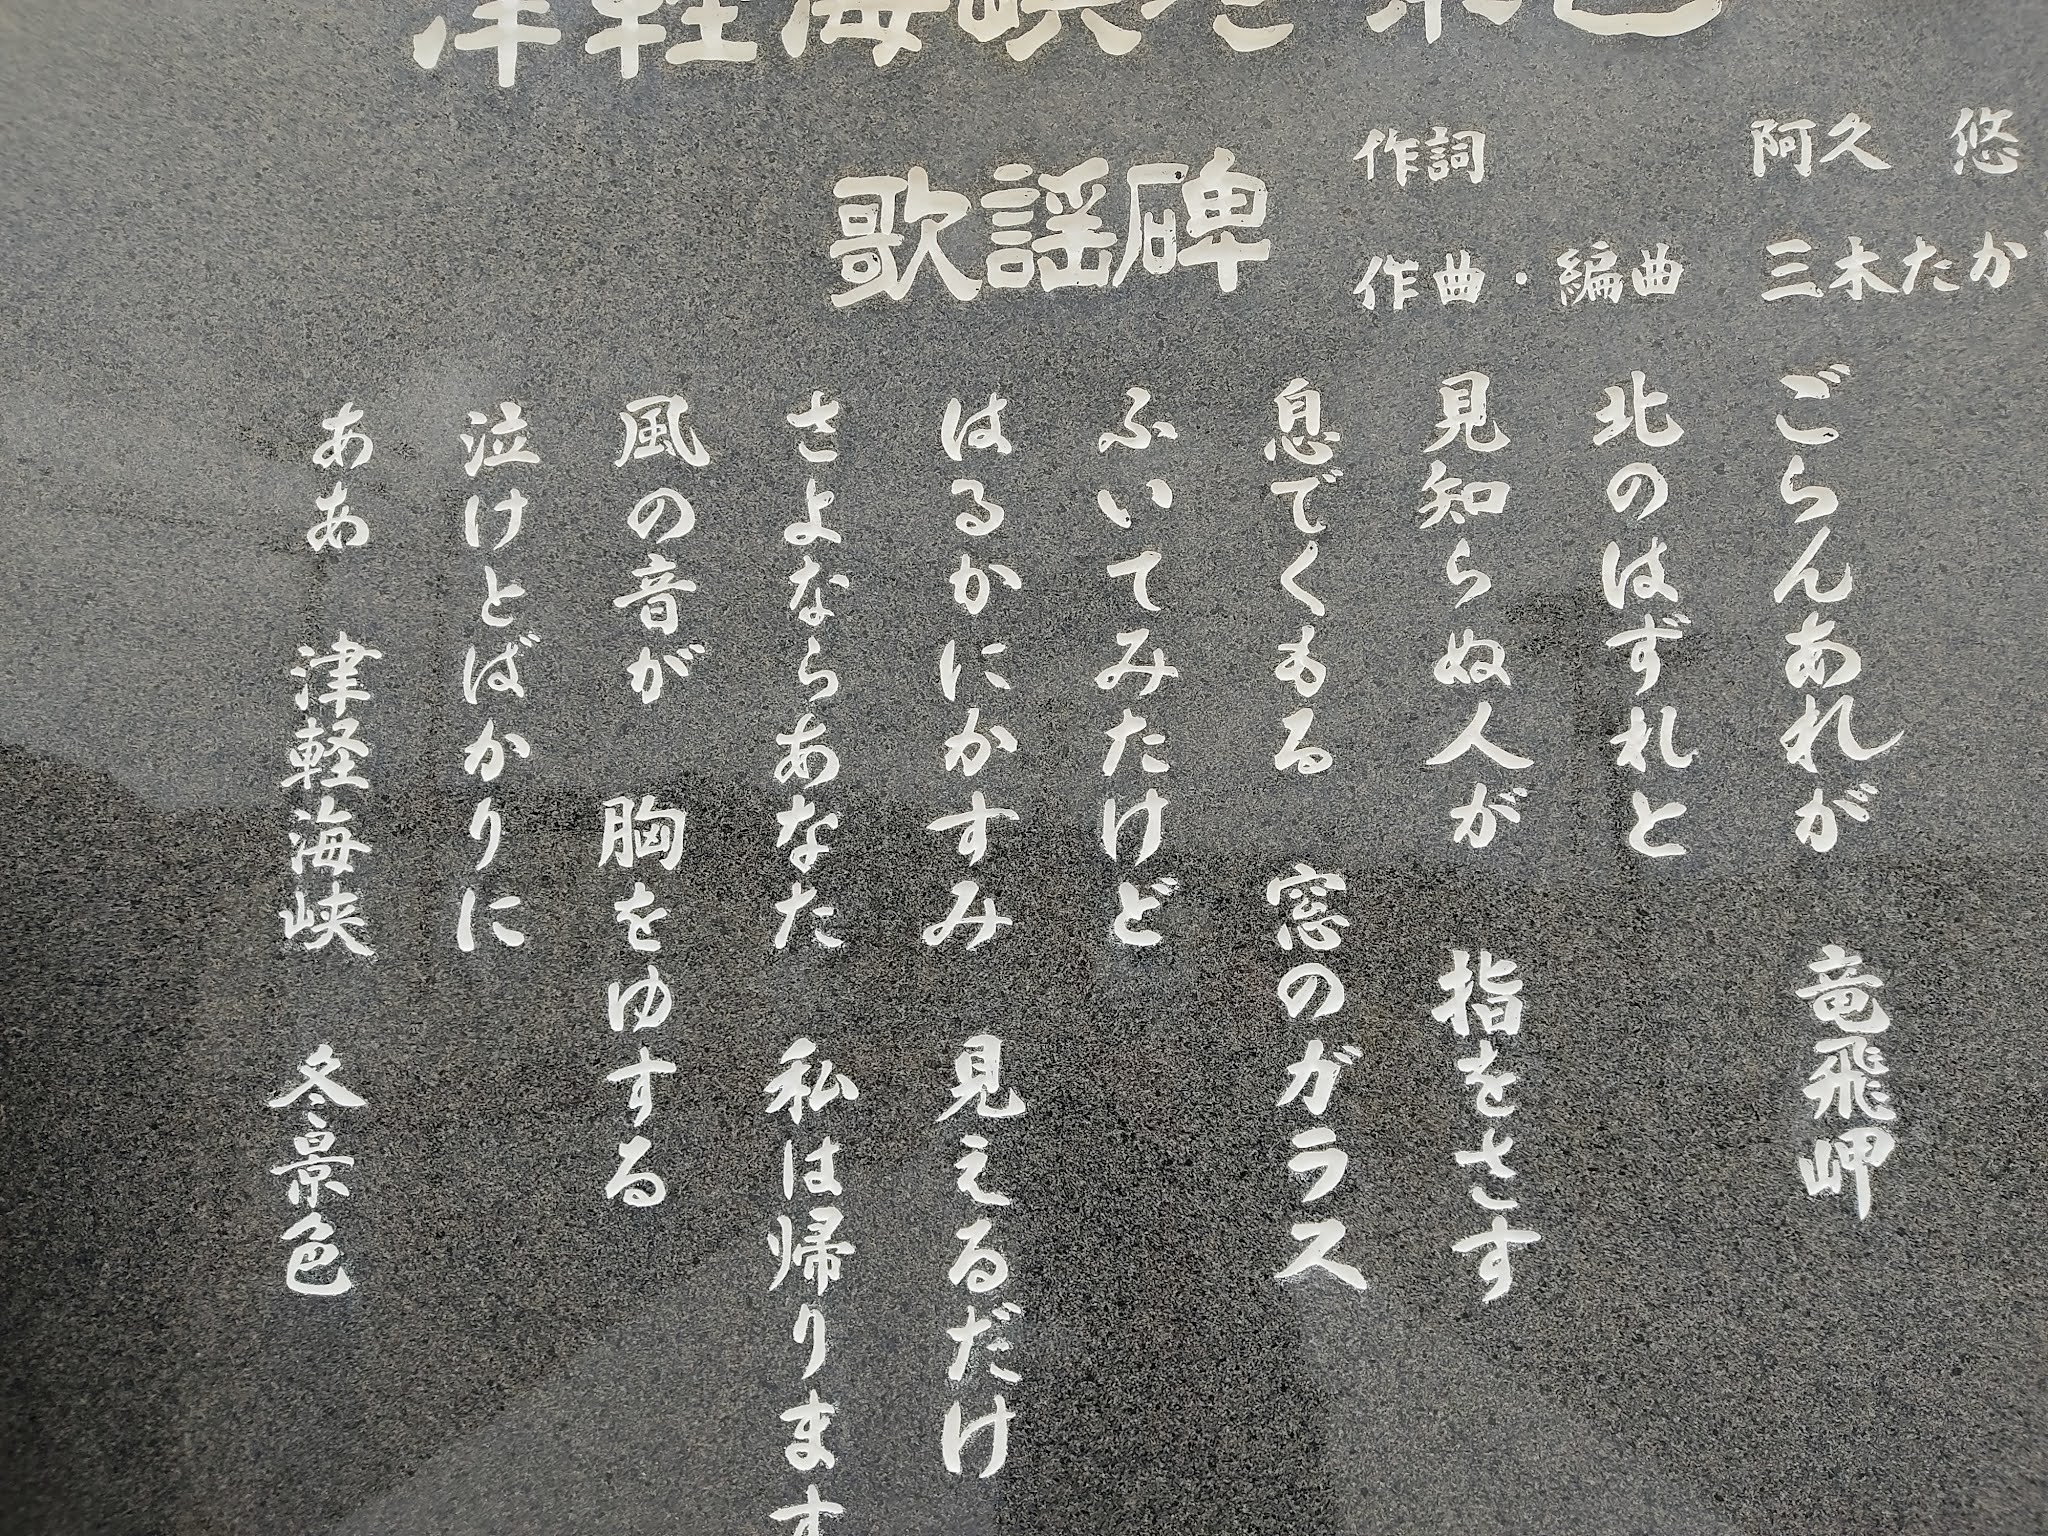 津軽海峡冬景色
歌謡碑
作詞 阿久 悠
作曲・編曲 三木たか
ごらんあれが 竜飛岬
北のはずれと
見知らぬ人が 指をさす
息でくもる 窓のガラス
ふいてみたけど
はるかにかすみ 見えるだけ
さよならあなた 私は帰ります
風の音が 胸をゆする
泣けとばかりに
ああ 津軽海峡 冬景色